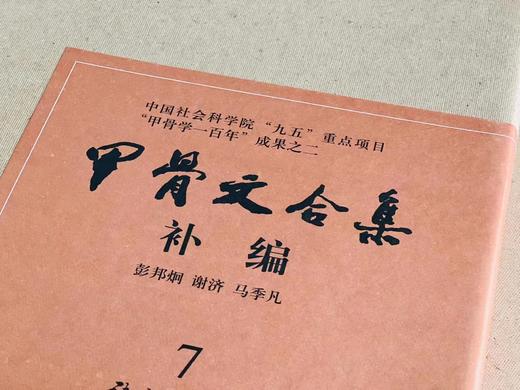 中国社会科学院“九五”重点项目
“甲骨学一百年”成果之二
甲骨文合集
补编
彭邦炯 谢济 马季凡
7